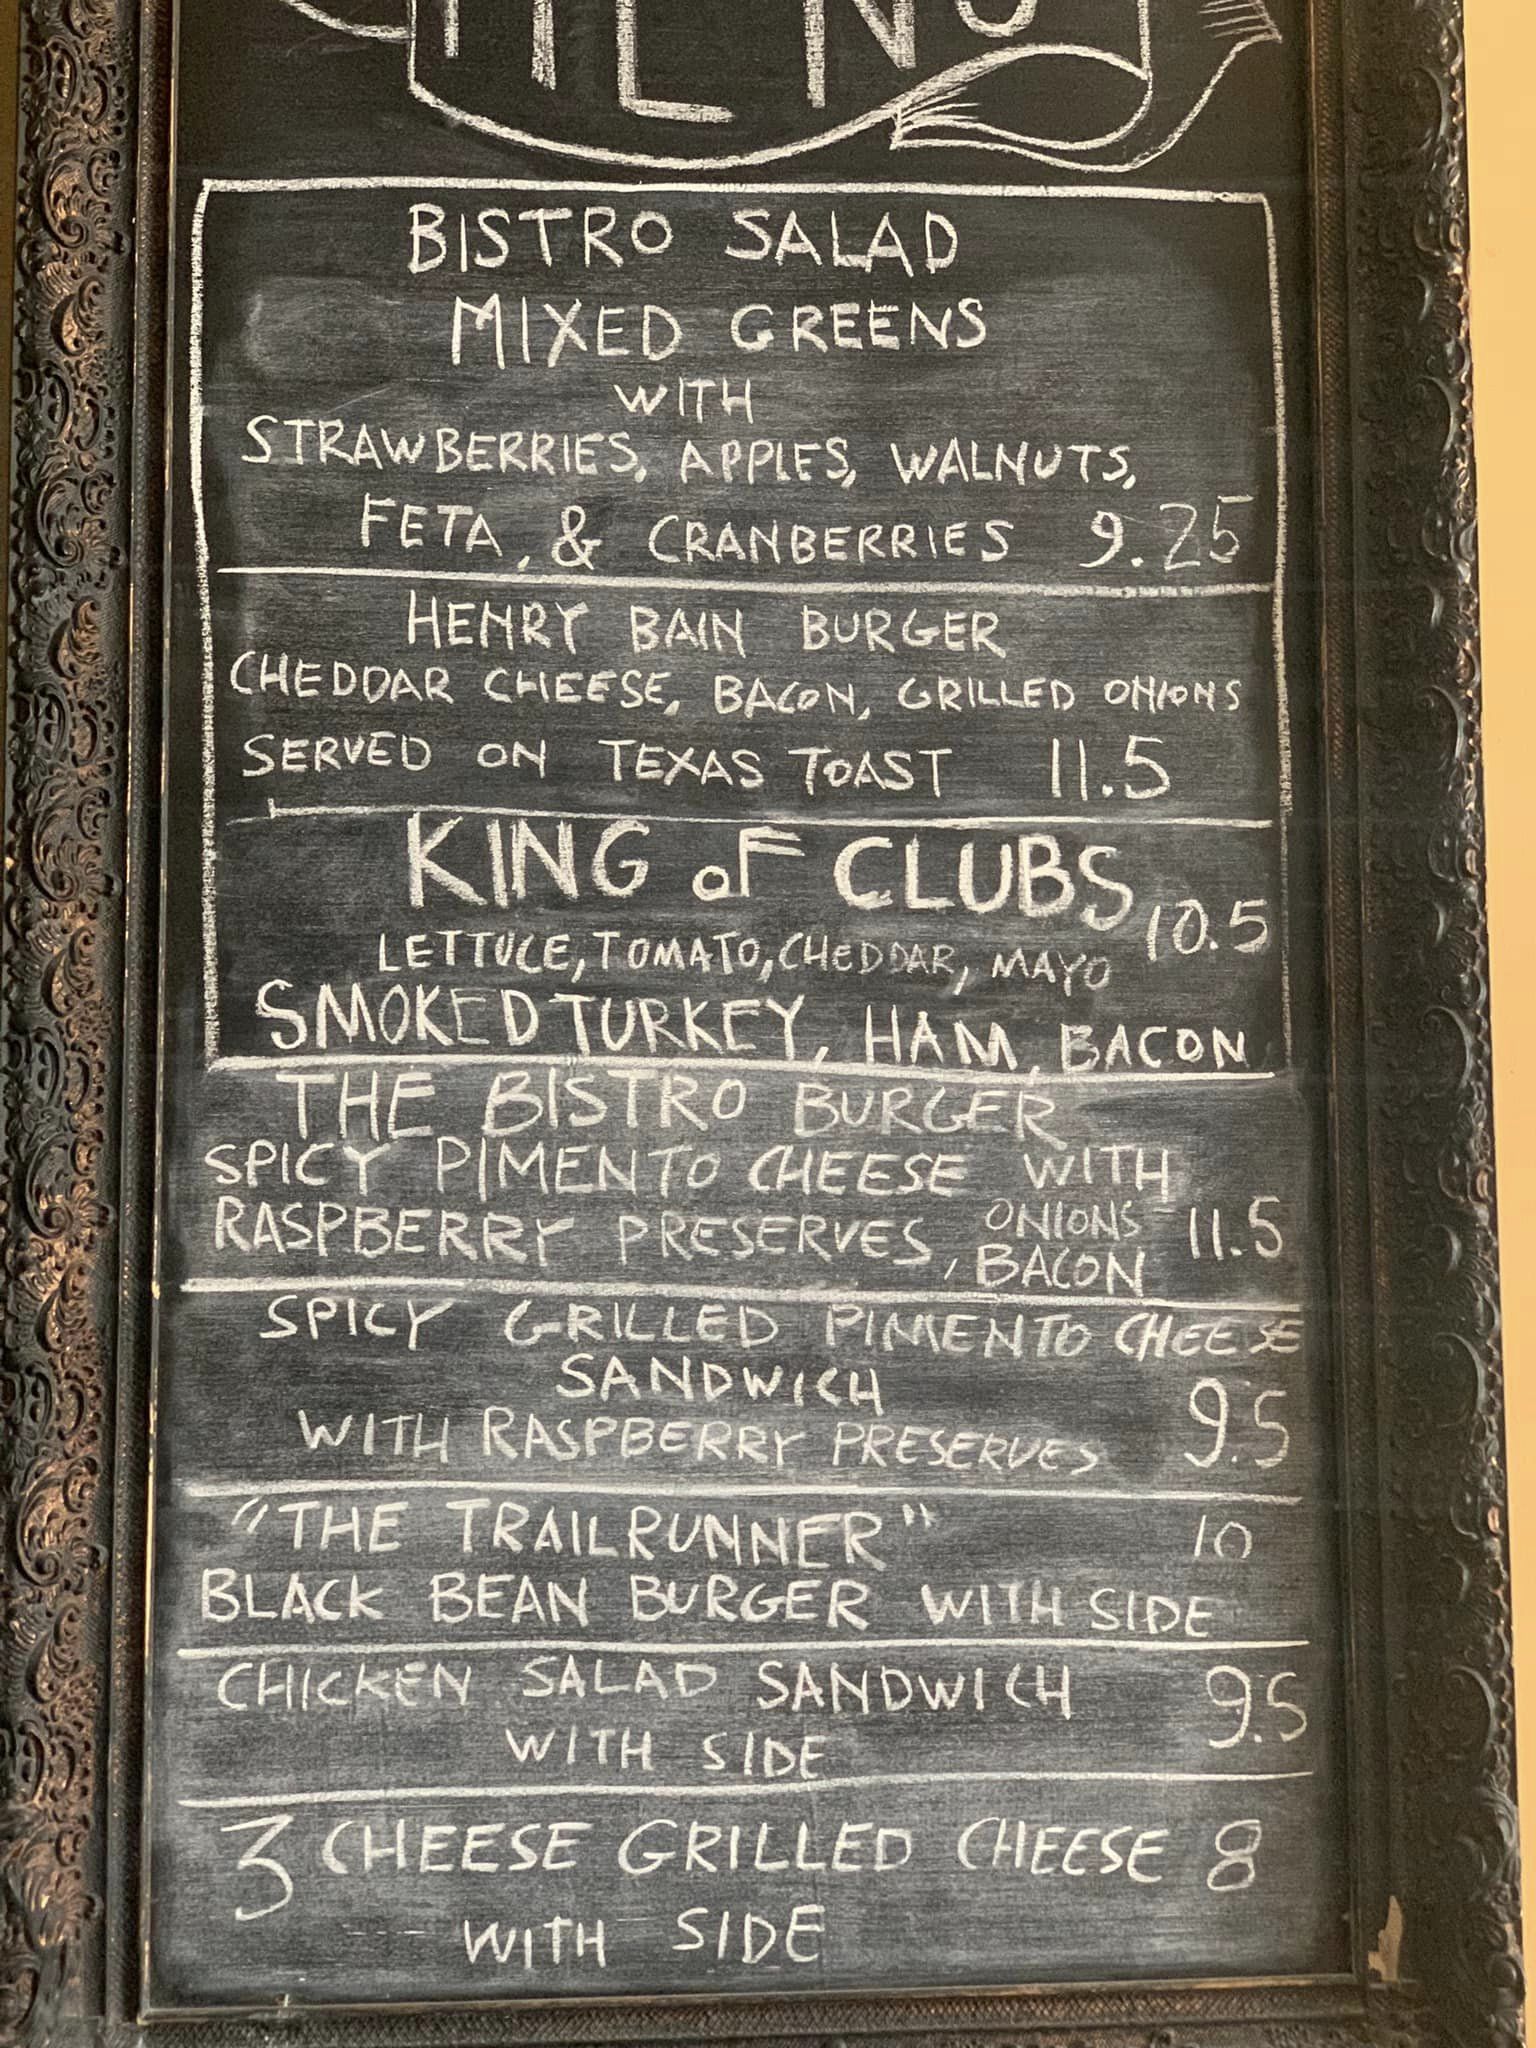 MENU
BISTRO SALAD
MIXED GREENS
WITH
STRAWBERRIES, APPLES, WALNUTS,
FETA, & CRANBERRIES 9.25
HENRY BAIN BURGER
CHEDDAR CHEESE, BACON, GRILLED ONIONS
SERVED ON TEXAS TOAST 11.5
KING OF CLUBS
LETTUCE, TOMATO, CHEDDAR, MAYO 10.5
SMOKED TURKEY, HAM, BACON
THE BISTRO BURGER
SPICY PIMENTO CHEESE WITH
RASPBERRY PRESERVES, ONIONS 11.5
, BACON
SPICY GRILLED PIMENTO CHEESE
SANDWICH 9.5
WITH RASPBERRY PRESERVES
"THE TRAILRUNNER" 10
BLACK BEAN BURGER WITH SIDE
CHICKEN SALAD SANDWICH 9.5
WITH SIDE
3 CHEESE GRILLED CHEESE 8
WITH SIDE